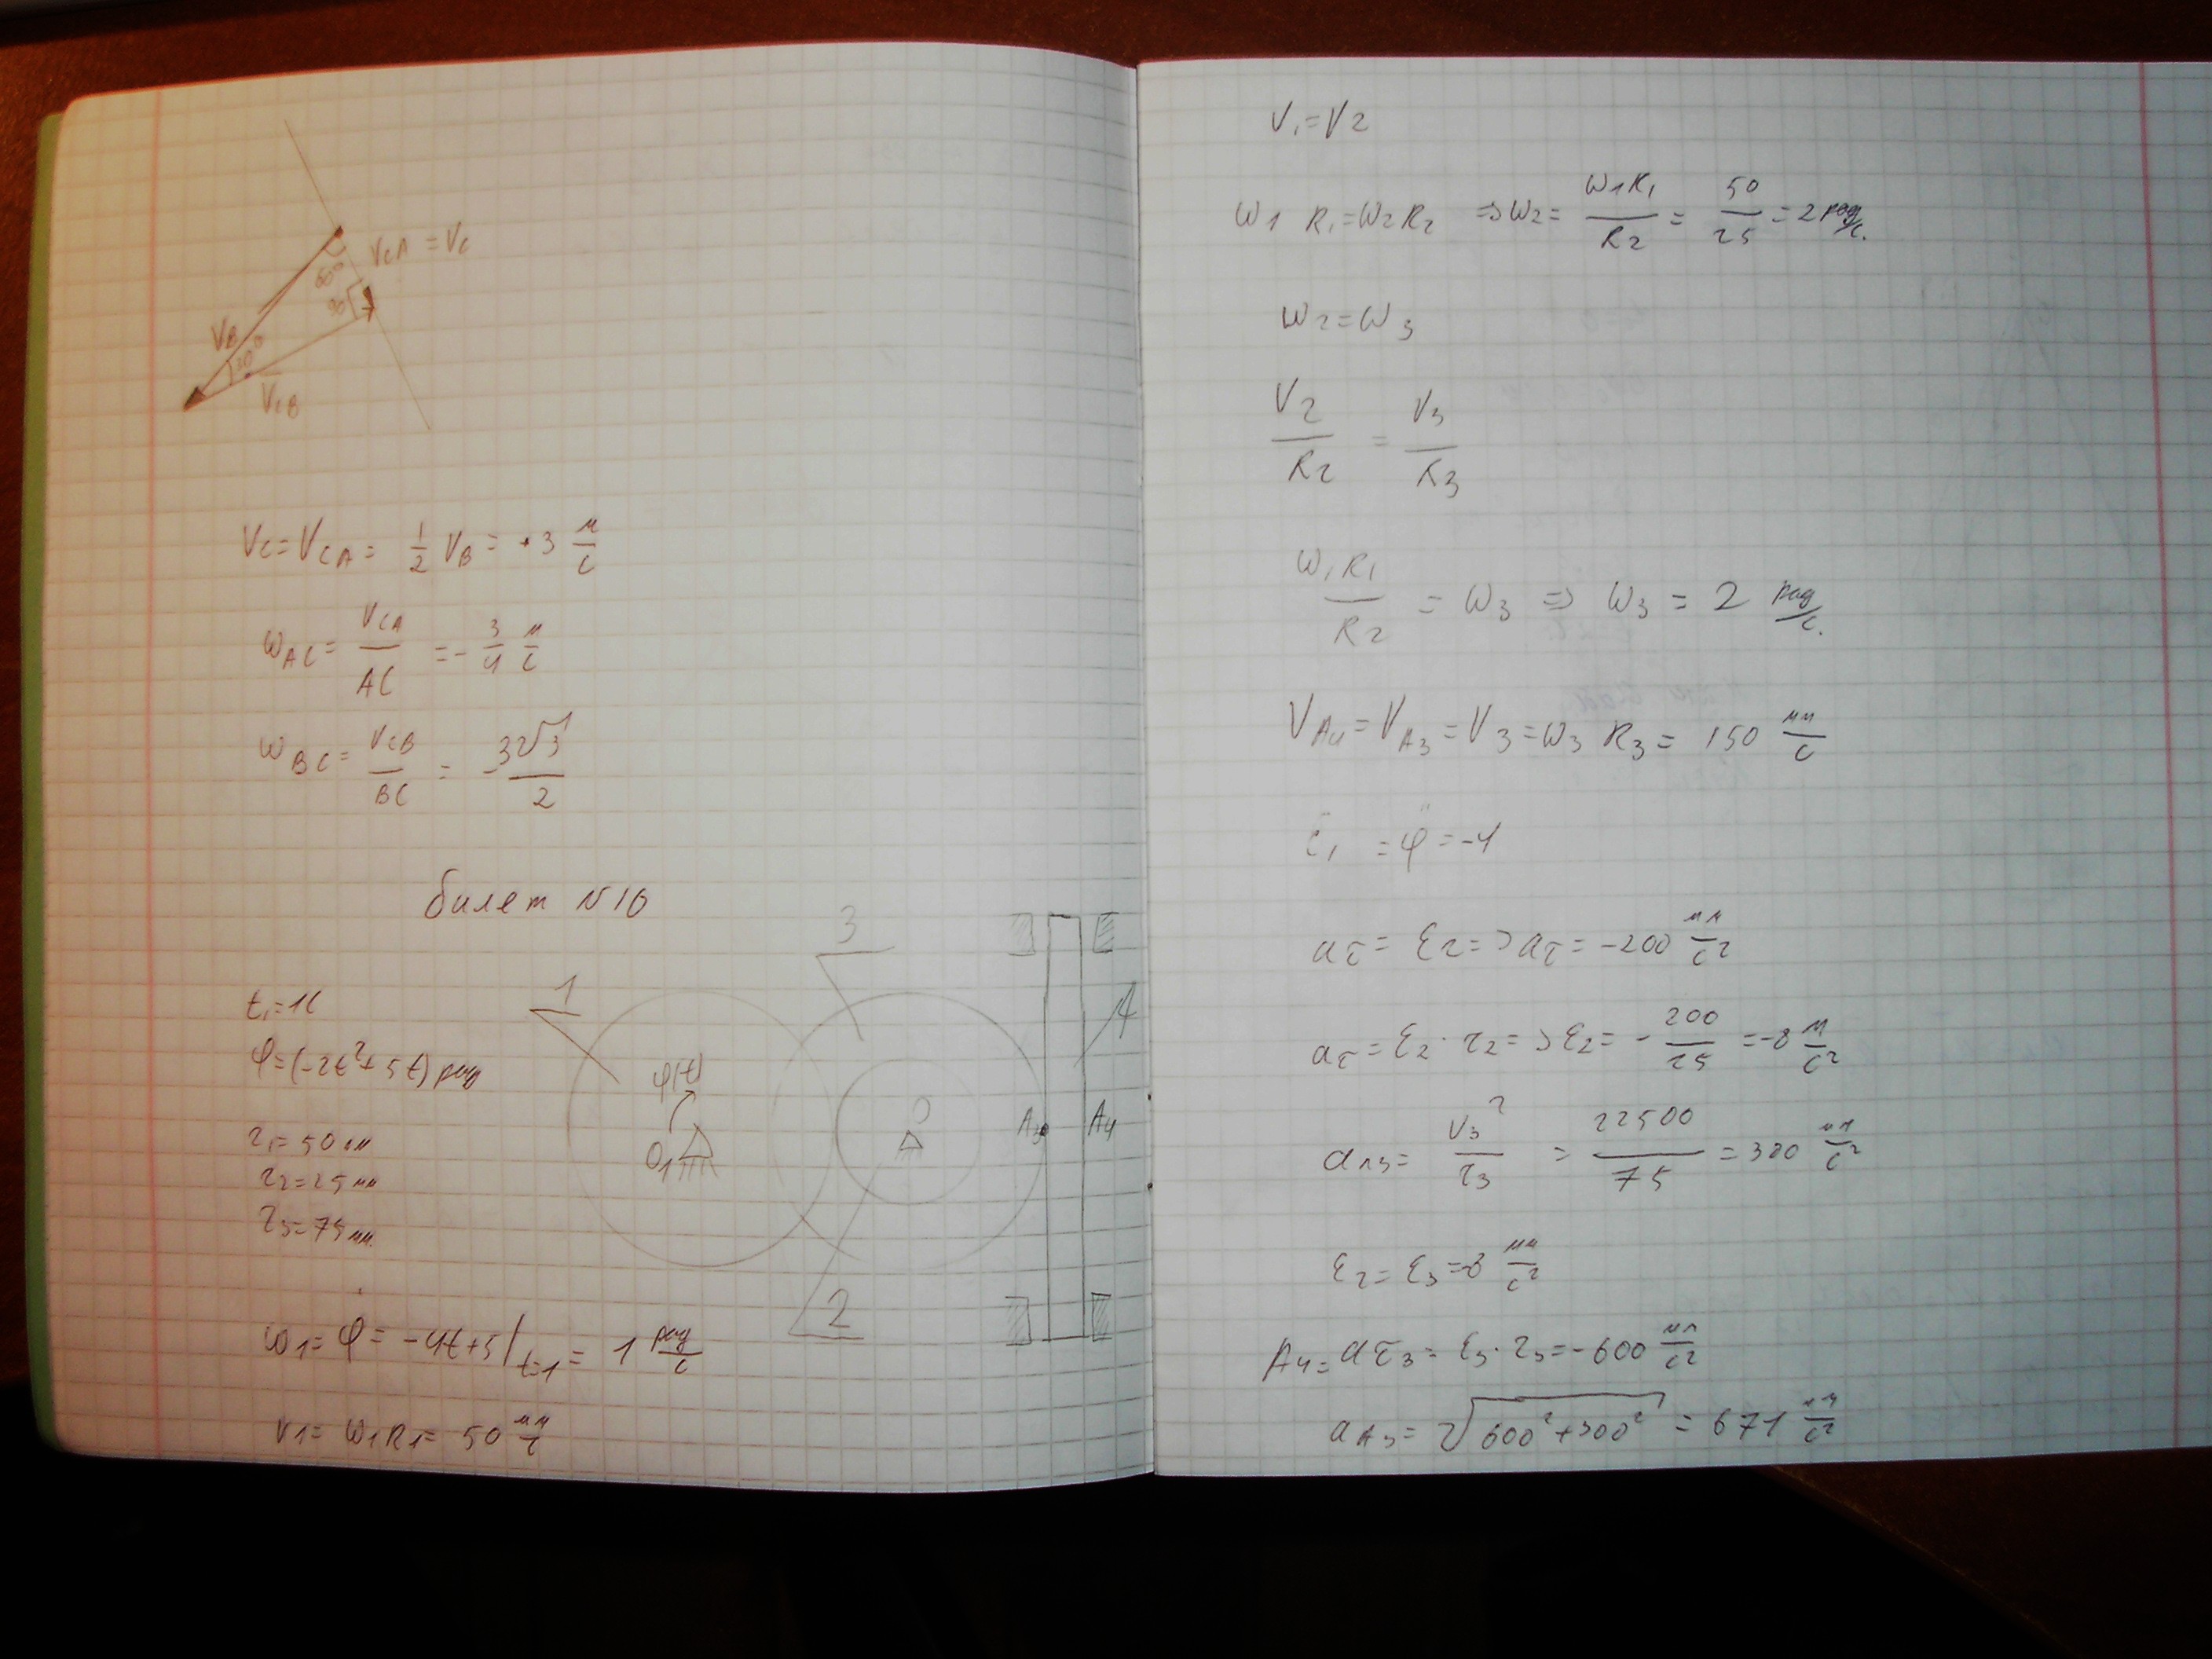 60°
V_CA = V_C
90
V_B
30°
V_CB
V_C = V_CA = 1/2 V_B = 3 м/с
ω_AC = V_CA/AC = - 3/4 м/с
ω_BC = V_CB/BC = - 3√3/2
билет N 10
t₁ = 1с
φ = (-2t² + 5t) рад
r₁ = 50 мм
r₂ = 25 мм
r₃ = 75 мм.
1
3
4
φ(t)
O₁
O
A₃
A₄
2
ω1 = φ̇ = -4t+5 |t=1 = 1 рад/с
V1 = ω1R1 = 50 мм/с
V₁ = V2
ω1 R₁ = ω2 R2 => ω2 = ω1R₁/R2 = 50/25 = 2 рад/с.
ω2 = ω3
V2/R2 = V3/R3
ω₁R₁/R2 = ω3 => ω3 = 2 рад/с.
V_A4 = V_A3 = V3 = ω3 R3 = 150 мм/с
ε₁ = φ̈ = -4
aτ = εr => aτ = -200 мм/с²
aτ = ε2 · r2 => ε2 = - 200/25 = -8 м/с²
an3 = V3²/r3 = 22500/75 = 300 мм/с²
ε2 = ε3 = -8 мм/с²
A4 = aτ3 = ε3 · r3 = -600 мм/с²
aA3 = √600² + 300² = 671 мм/с²